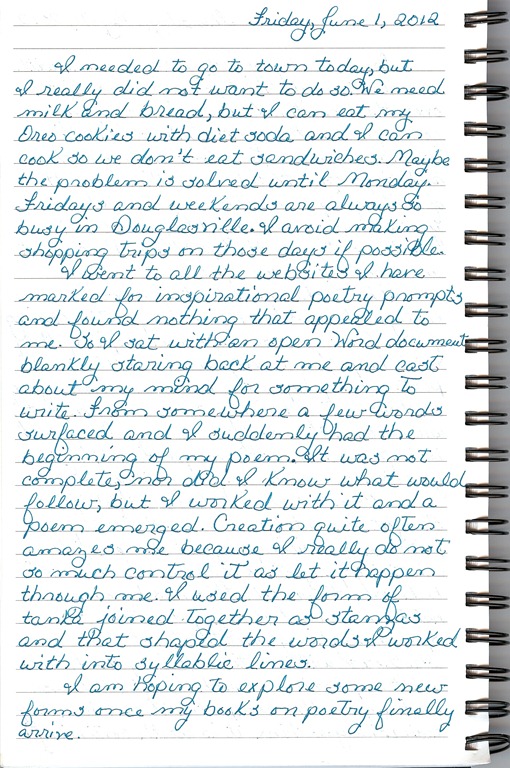 Friday, June 1, 2012
I needed to go to town today, but
I really did not want to do so. We need
milk and bread, but I can eat my
Oreo cookies with diet soda and I can
cook so we don't eat sandwiches. Maybe
the problem is solved until Monday.
Fridays and weekends are always so
busy in Douglasville. I avoid making
shopping trips on those days if possible.
I went to all the websites I have
marked for inspirational poetry prompts
and found nothing that appealed to
me. So I sat with an open Word document
blankly staring back at me and cast
about my mind for something to
write. From somewhere a few words
surfaced and I suddenly had the
beginning of my poem. It was not
complete, nor did I know what would
follow, but I worked with it and a
poem emerged. Creation quite often
amazes me because I really do not
so much control it as let it happen
through me. I used the form of
tanka joined together as stanzas
and that shaped the words I worked
with into syllabic lines.
I am hoping to explore some new
forms once my books on poetry finally
arrive.